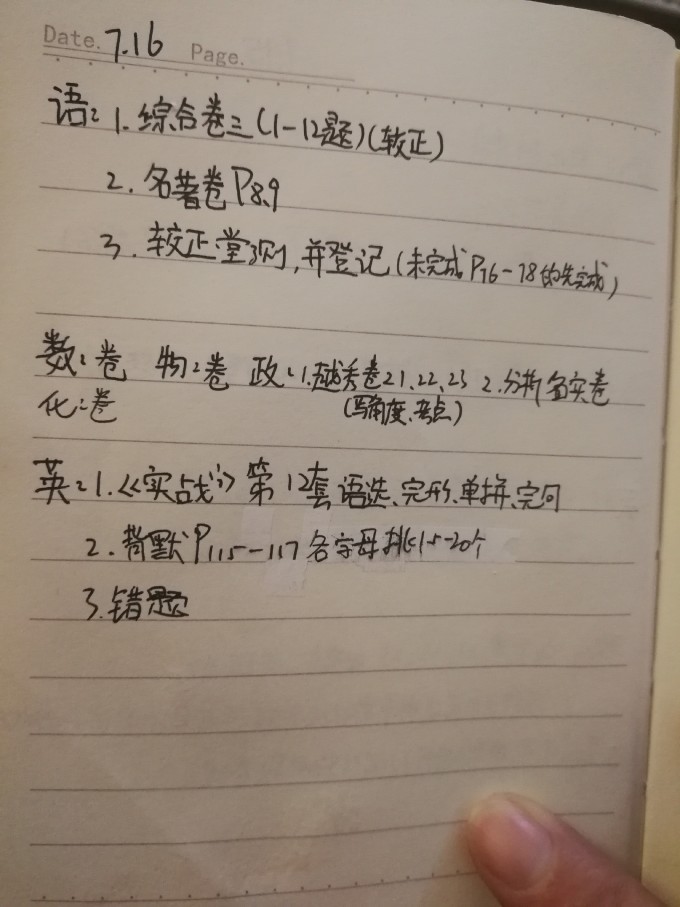 Date. 7.16 Page.
语: 1. 综合卷三(1-12题)(较正)
2. 名著卷P8.9
3. 较正堂测,并登记(未完成P76-78的先完成)
数:卷 物:卷 政:1.越秀卷21、22、23 2.分析省实卷
化:卷 (写角度、考点)
英:1.《实战》第12套 语选、完形、单拼、完问
2. 背默P115-117 各字母挑15-20个
3.错题